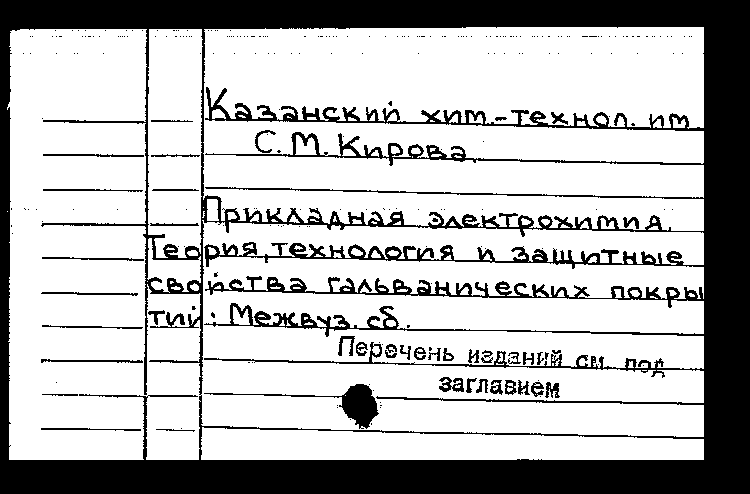 Казанский хим.-технол. им.
С.М. Кирова.
Прикладная электрохимия.
Теория, технология и защитные
свойства гальванических покры
тий: Межвуз. сб.
Перечень изданий см. под
заглавием